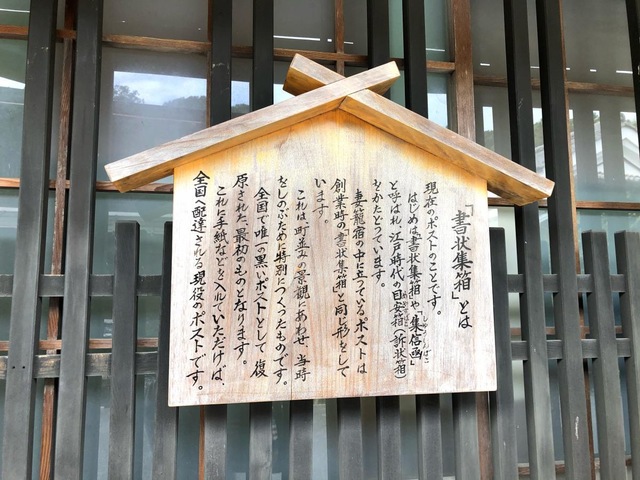 「書状集箱」とは
現在のポストのことです。
はじめは「書状集箱」や「集信函」
と呼ばれ、江戸時代の目安箱(訴状箱)
をかたどっています。
妻籠宿の中に立っているポストは
創業時の「書状集箱」と同じ形をして
います。
これは、町並みの景観にあわせ、当時
をしのぶために特別につくったものです。
全国で唯一の黒いポストとして復
原された、最初のものとなります。
これに手紙などを入れていただけば、
全国へ配達される現役のポストです。